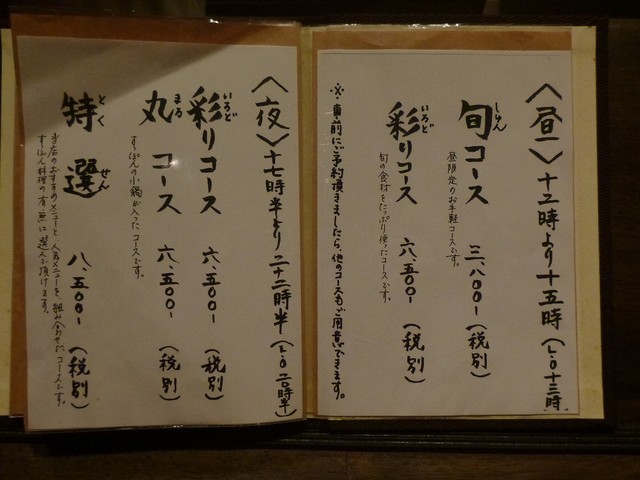 〈昼〉十二時より十五時(L.O十三時)
旬コース 三、八〇〇ー(税別)
しゅん
昼限定のお手軽コースです。
彩りコース 六、五〇〇ー(税別)
いろど
旬の食材をたっぷり使ったコースです。
※事前にご予約頂きましたら、他のコースもご用意できます。
〈夜〉十七時半より二十二時半(L.O二〇時半)
彩りコース 六、五〇〇ー(税別)
いろど
丸コース 六、五〇〇ー(税別)
まる
すっぽんの小鍋が入ったコースです。
特選 八、五〇〇ー(税別)
とくせん
当店のおすすめメニューと人気メニューを、組み合わせたコースです。
すっぽん料理の有無は選んで頂けます。